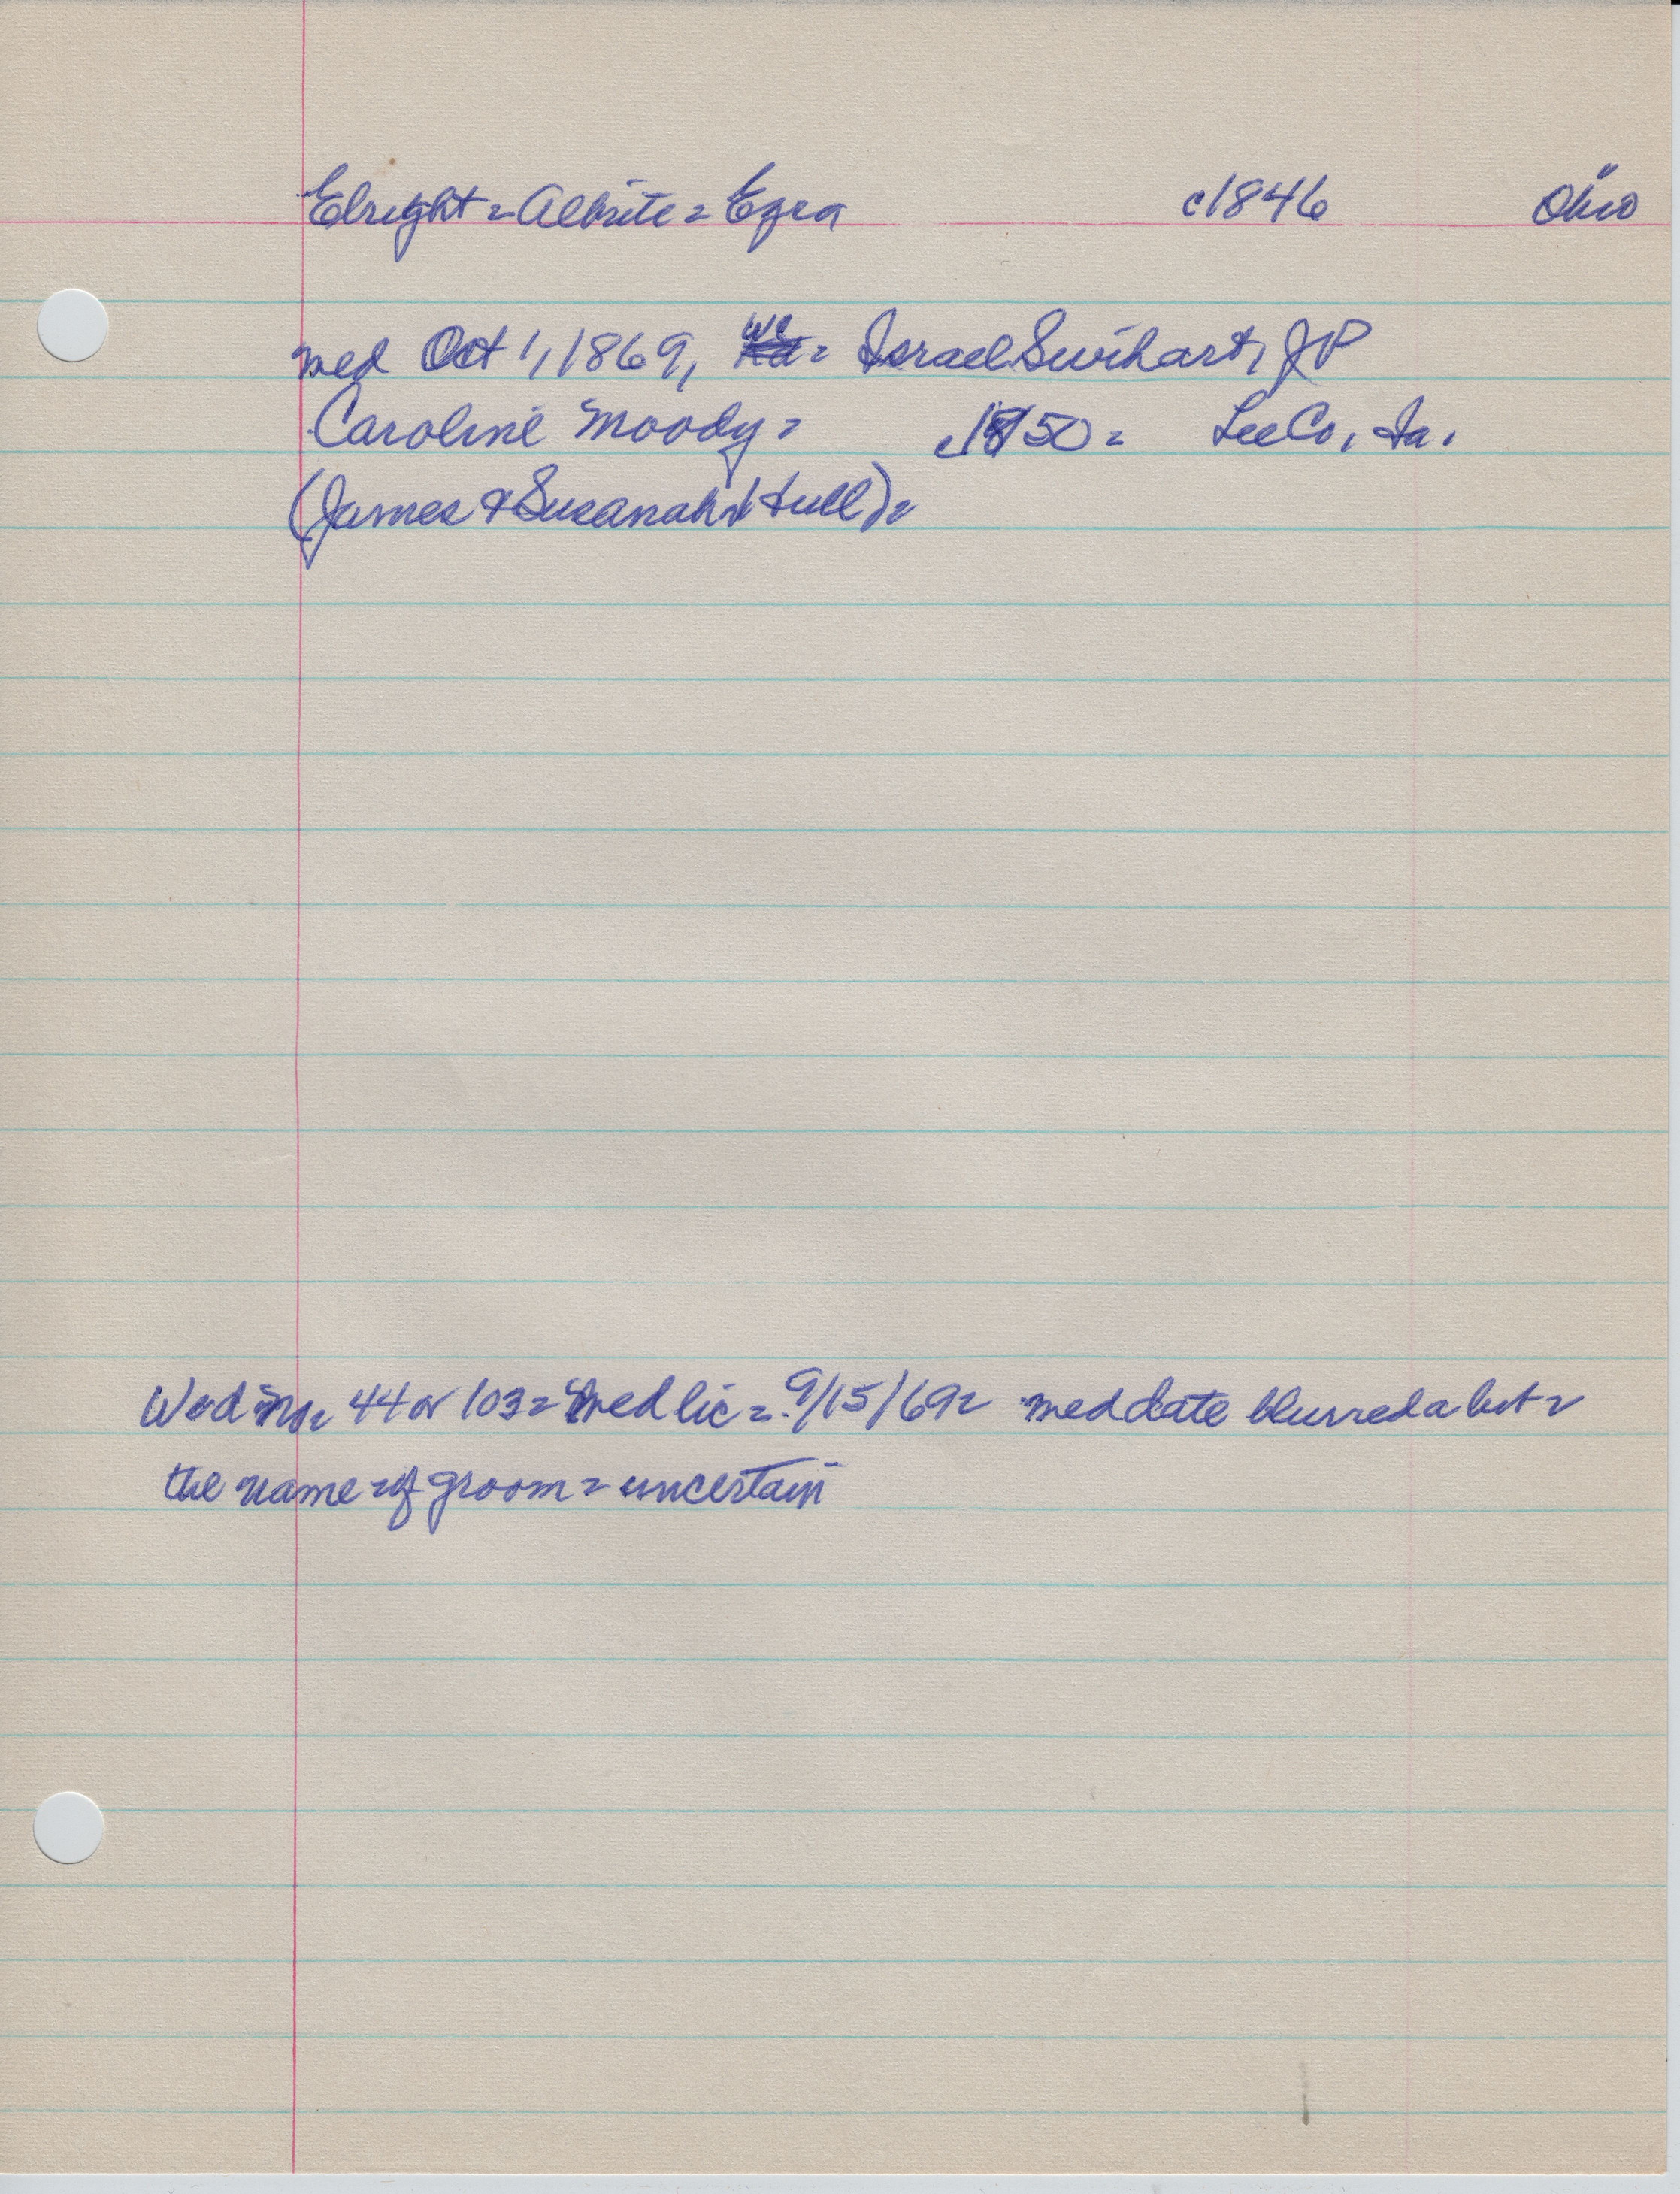 Elright = Albrite = Ezra c1846 Ohio
med Oct 1, 1869, = Israel Swihart, JP
Caroline Moody = c1850 = Lee Co, Ia.
(James & Susanah Hull) =
Wed no = 44 or 103 = med lic = 9/15/69 = med date blurred a bit =
the name = of groom = uncertain